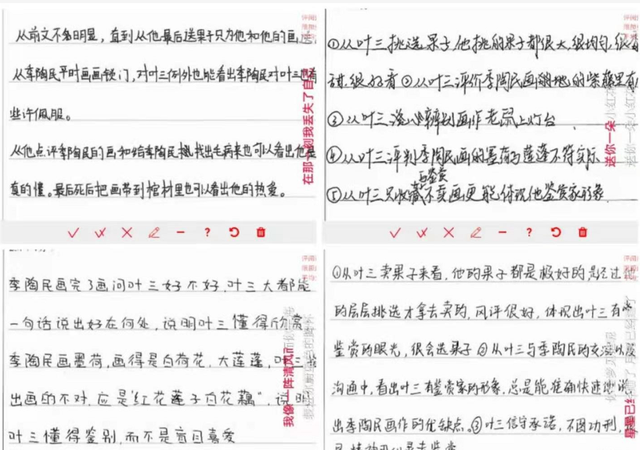 从前文不甚明显，直到从他最后送果子只为他和他的画
从李陶民平时画画锁门，对叶三例外也能看出李陶民对叶三
些许佩服。
从他点评季陶民的画和给季陶民挑找出毛病来也可以看出他是
真的懂。最后死后把画带到棺材里也可以看出他的热爱。
在那一刻我丢失了自
①从叶三挑选果子，他挑的果子都很大，很均匀，很
甜，很好看②从叶三评价李陶民画满地的紫藤里有
③从叶三辨别画作老鼠上灯台
④从叶三评判李陶民画的墨荷与莲蓬不符实际
与鉴赏
⑤从叶三只收藏不卖画更能体现他鉴赏家形象
送你一朵小红
李陶民画完了画问叶三好不好，叶三大都能
一句话说出好在何处，说明叶三懂得欣赏
李陶民画墨荷，画得是白荷花，大莲蓬，叶三
出画的不对，应是“红花莲子白花藕”，说明
叶三懂得鉴别，而不是盲目喜爱
我像一阵清风
①从叶三卖果子来看，他的果子都是极好的总经过他
的层层挑选才拿去卖的，风评很好，体现出叶三有
鉴赏的眼光，很会选果子②从叶三与李陶民的交谈以及
沟通中，看出叶三有鉴赏家的形象，总是能准确快速地
出李陶民画作的优缺点。③叶三信守承诺，不图功利，